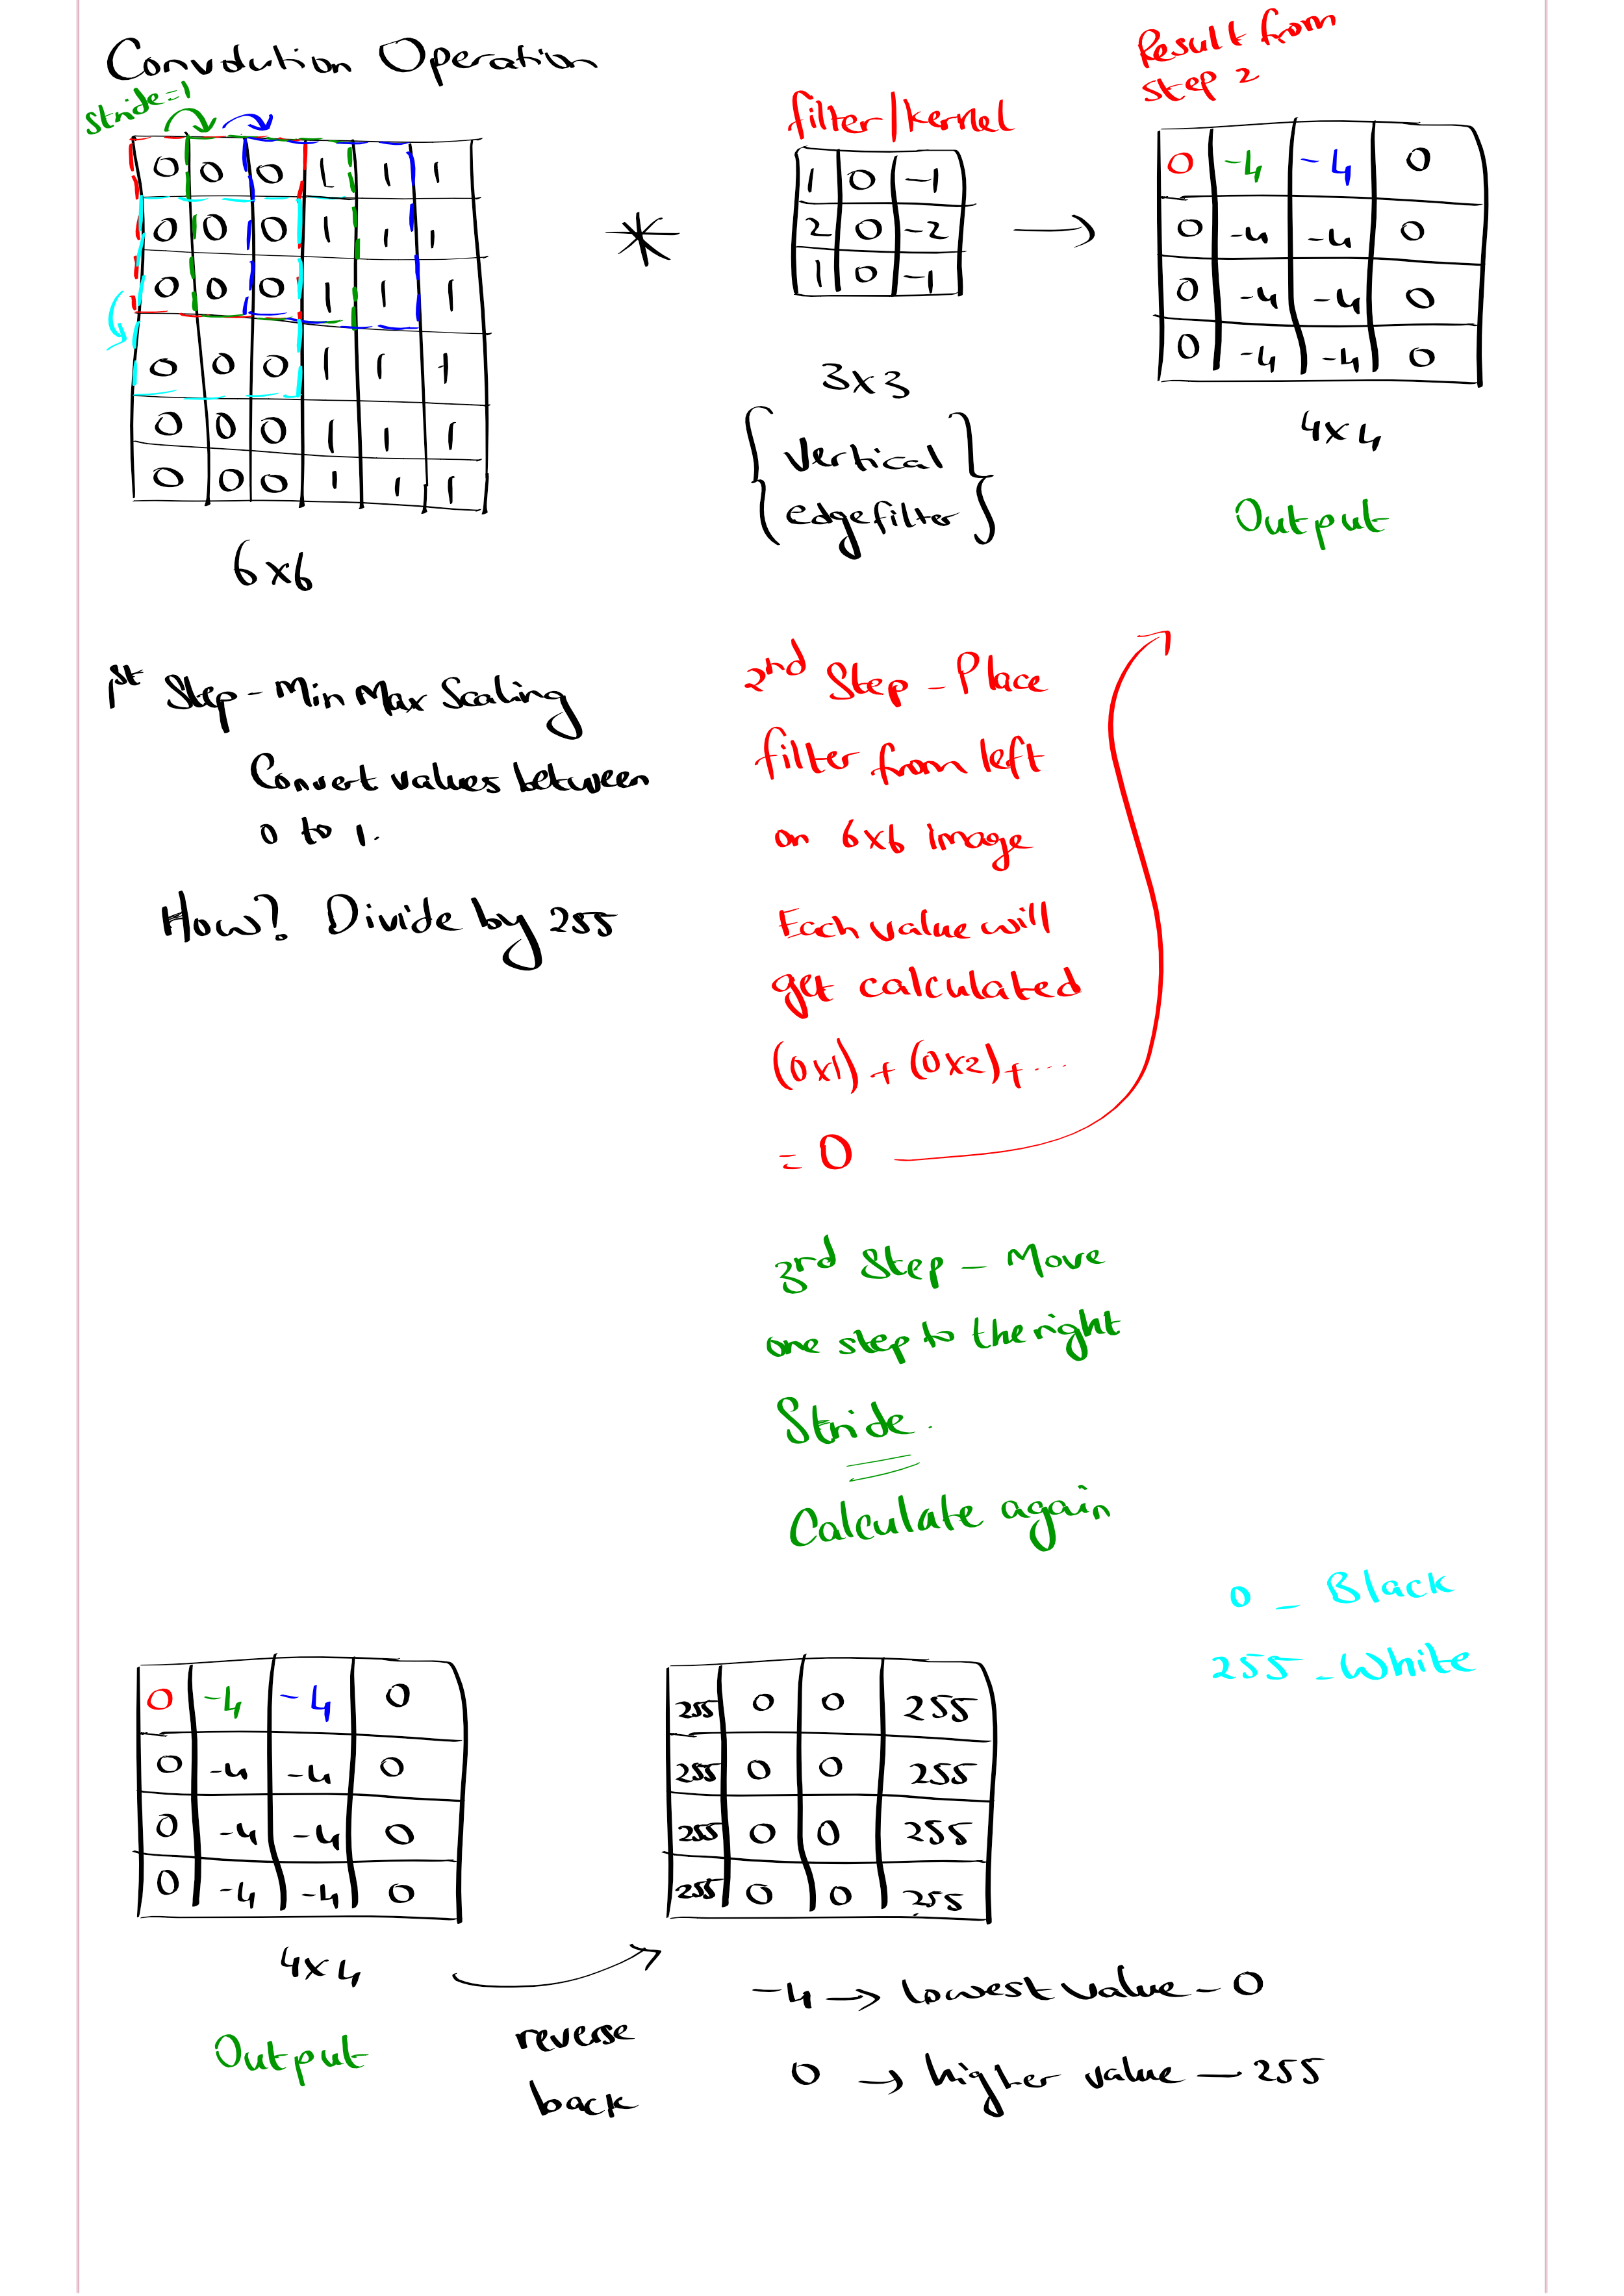 Convolution Operation
stride=1
0 0 0 1 1 1
0 0 0 1 1 1
0 0 0 1 1 1
0 0 0 1 1 1
0 0 0 1 1 1
0 0 0 1 1 1
6x6
*
filter/kernel
1 0 -1
2 0 -2
1 0 -1
3x3
{vertical
edgefilter}
Result from
step 2
0 -4 -4 0
0 -4 -4 0
0 -4 -4 0
0 -4 -4 0
4x4
Output
1st Step - Min Max Scaling
Convert values between
0 to 1.
How? Divide by 255
2nd Step - Place
filter from left
on 6x6 image
Each value will
get calculated
(0x1) + (0x2) + ...
= 0
3rd Step - Move
one step to the right
Stride.
Calculate again
0 - Black
255 - White
0 -4 -4 0
0 -4 -4 0
0 -4 -4 0
0 -4 -4 0
4x4
Output
reverse
back
255 0 0 255
255 0 0 255
255 0 0 255
255 0 0 255
-4 → lowest value - 0
0 → higher value - 255